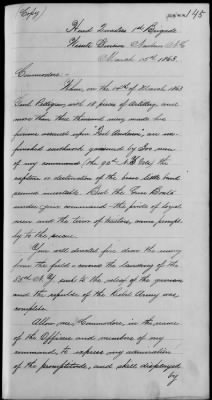 (Copy)
145
Head Quarters 1st Brigade
March 15th 1863.
Commodore -
When, on the 14th of March 1863
Genl Pettigrew, with 18 pieces of Artillery, and
more than three thousand men, made his
furious assault upon "Fort Anderson", an un-
finished earthwork guarded by 300 men
of my command, (the 92nd N.Y. Vols) the
capture or destruction of the brave little band
seemed inevitable. But the Gun Boats
under your command - the pride of loyal
men and the terror of traitors, came promptly
to the rescue.
You will directed fire drove the enemy
from the field - covered the landing of the
85th N.Y. sent to the relief of the garrison
and the repulse of the Rebel Army was
complete.
Allow me, Commodore, in the name
of the Officers and members of my
command to express my admiration
of the promptitude, and skill displayed
by